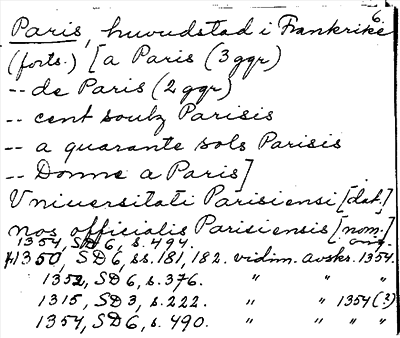 6.
Paris, huvudstad i Frankrike
(forts.) [a Paris (3 ggr)
-- de Paris (2 ggr)
-- cent soubz Parisis
-- a quarante sols Parisis
-- Donne a Paris]
Vniuersitati Parisiensi [dat.]
nos officialis Parisiensis [nom.]
1354, SD 6, s. 494. orig.
1350, SD 6, ss. 181, 182. vidim. avskr. 1354.
1352, SD 6, s. 376. " " "
1315, SD 3, s. 222. " " 1354 (?)
1354, SD 6, s. 490. " " " "